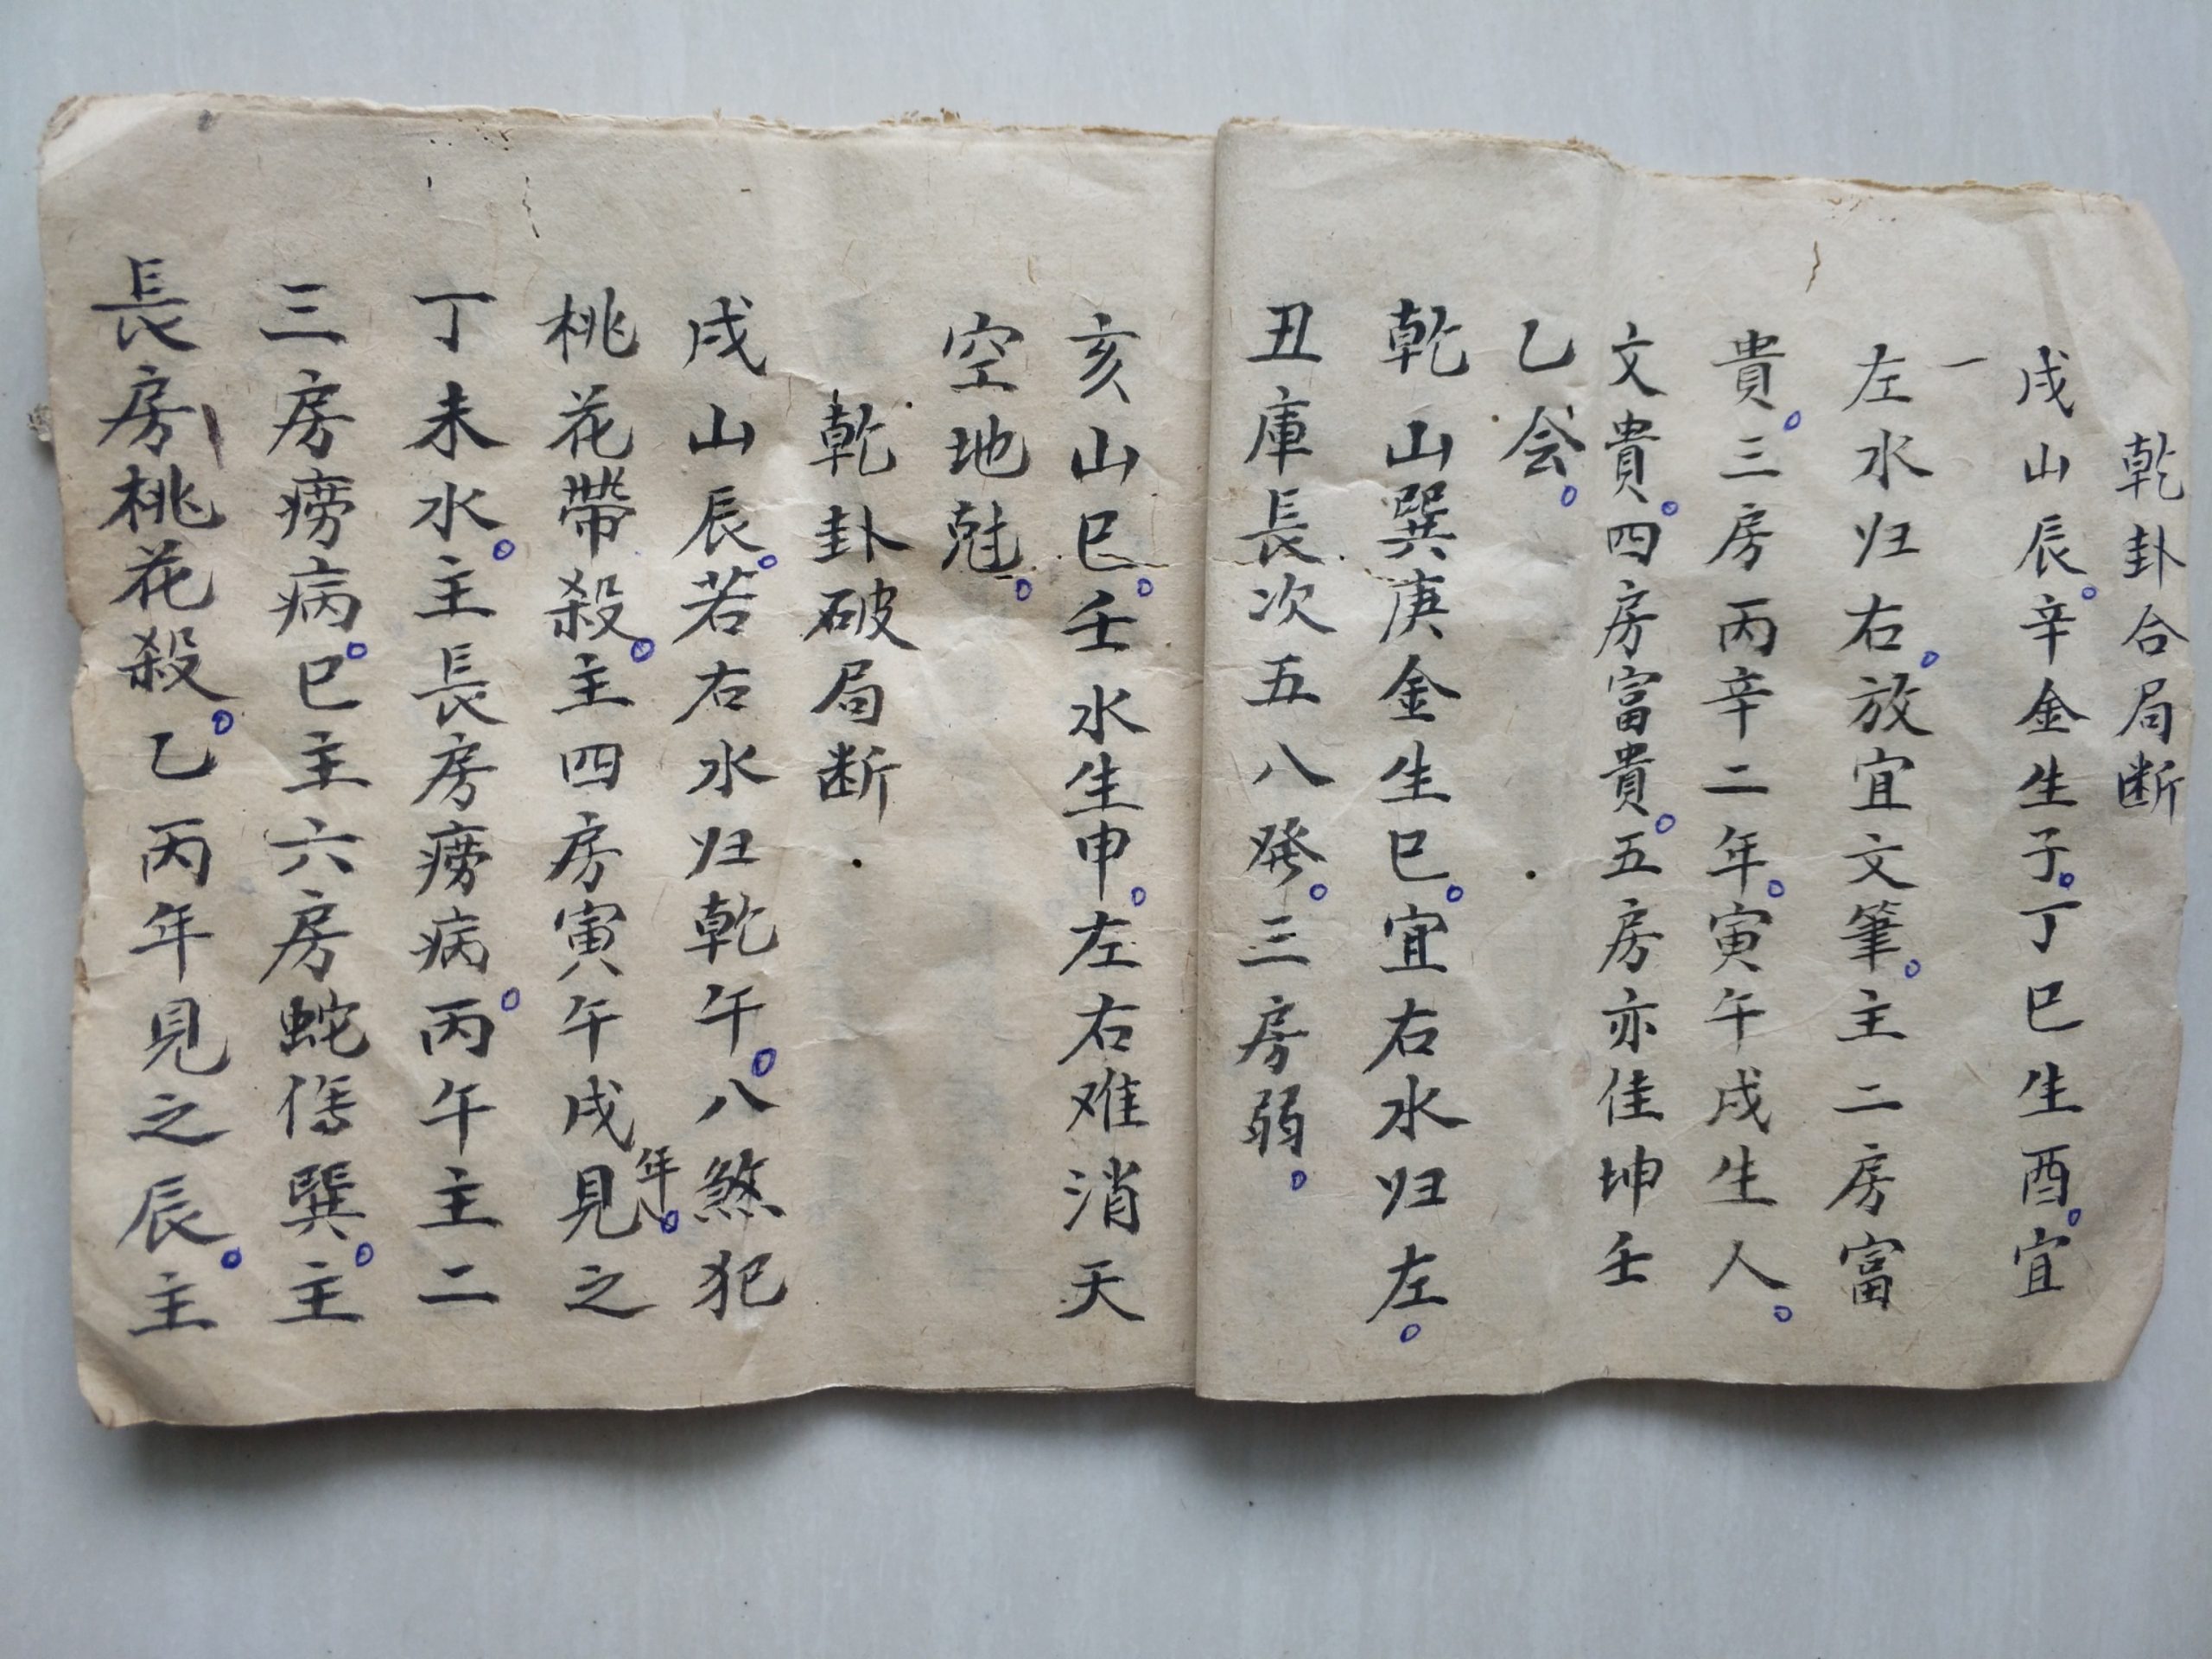 乾卦合局断
戌山辰。辛金生子。丁巳生酉。宜
左水归右。放宜文筆。主二房富
貴。三房丙辛二年。寅午戌生人。
文貴。四房富貴。五房亦佳坤壬
乙会。
乾山巽庚金生巳。宜右水归左。
丑庫長次五八発。三房弱。
亥山巳。壬水生申。左右难消天
空地尅。
乾卦破局断
戌山辰。若右水归乾午。八煞犯
桃花帶殺。主四房寅午戌年。見之
丁未水。主長房癆病。丙午主二
三房癆病。巳主六房蛇傷巽。主
長房桃花殺。乙丙年見之辰。主